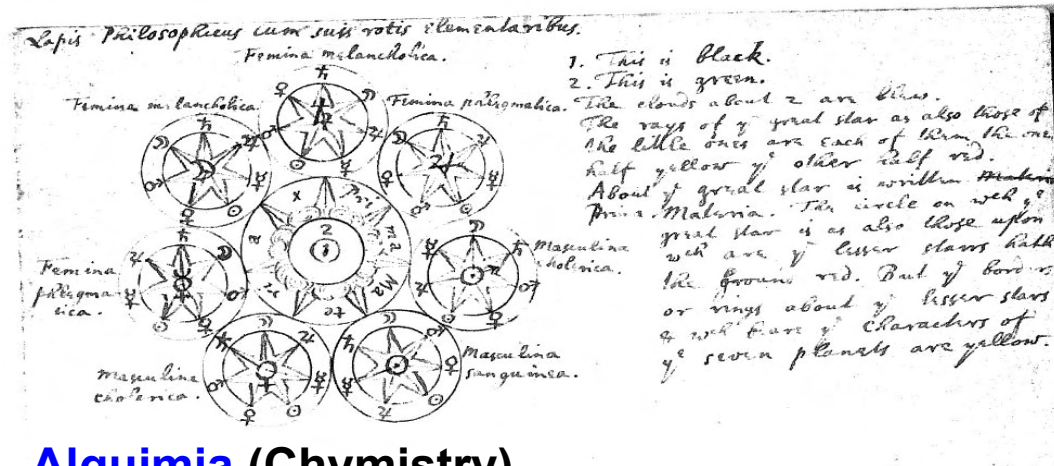 Lapis Philosophicus cum suis rotis elementaribus.
Femina melancholica.
Femina melancholica.
Femina phlegmatica.
Masculina
cholerica.
Femina
phlegma
tica.
Masculina
cholerica.
Masculina
sanguinea.
1. This is black.
2. This is green.
The clouds about 2 are blew.
The rays of yᵉ great star as also those of
the little ones are each of them the one
half yellow yᵉ other half red.
About yᵉ great star is written
Prima Materia. The circle on wch yᵉ
great star is as also those upon
wch are yᵉ lesser starrs hath
the ground red. But yᵉ borders
or rings about yᵉ lesser stars
& wch beare yᵉ characters of
yᵉ seven planets are yellow.
Alquimia (Chymistry)